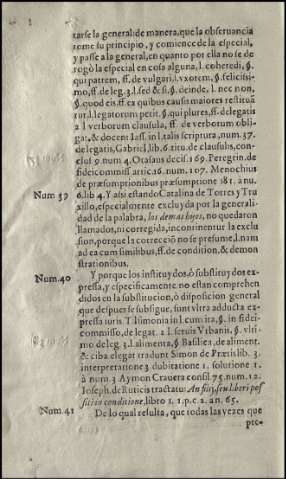 tarse la general: de manera, que la obseruancia
tome su principio, y comience de la especial,
y passe a la general, en quanto por ella no se de
rogò la especial en cosa alguna, l. coheredi, §.
qui patrem, ff. de vulgari, l. vxorem, §. felicissi-
mo, ff. de leg. 3. l. sed & si §. deinde, l. nec non,
§. quod eis, ff. ex quibus causis maiores restituã
tur, l. legatorum petit. §. qui plures, ff. de legatis
a l verborum clausula, ff de verborum obli-
gat, & docent Iass. in l. talis scriptura, num. 37.
de legatis, Gabriel, lib. 6 titu. de clausulis, con-
clus 9. num 4. Otalaus decis. 169. Peregrin. de
fideicommiss artic. 16. num. 107. Menochius
de præsumptionibus præsumptione 181. à nu.
Num 39 6. lib 4. Y assi estando Catalina de Torres y Tru
xillo, especialmente excluyda por la generali-
dad de la palabra, los demas hijos, no quedaron
llamados, ni corregida, in continentur la exclu
sion, porque la correcciõ no se presume, l. nam
ad ea cum similibus, ff. de condition, & demon
strationibus.
Num. 40 Y porque los instituydos, ò substituydos ex-
pressa, y especificamente no estan comprehen
didos en la substitucion, ò disposicion general
que despues se subsigue, sunt vltra adducta ex-
pressa iuris Testimonia in l. cum ita, §. in fidei-
commisso, de legat. 2 l. seruis Vrbanis. §. vlti-
mo de leg. 3. l. alimenta, §. Basilicæ, de aliment.
& ciba. elegat tradunt Simon de Prætis lib. 3.
interpretatione 3 dubitatione 1. solutione 1.
à num. 3 Aymon Crauera consil 75. num. 12.
Ioseph. de Rusticis tractatu An si, seu liberi pos
siti in conditione, libro 1. 1. p. c. 2. an. 65.
Num. 41 De lo qual resulta, que todas las vezes que
pre-